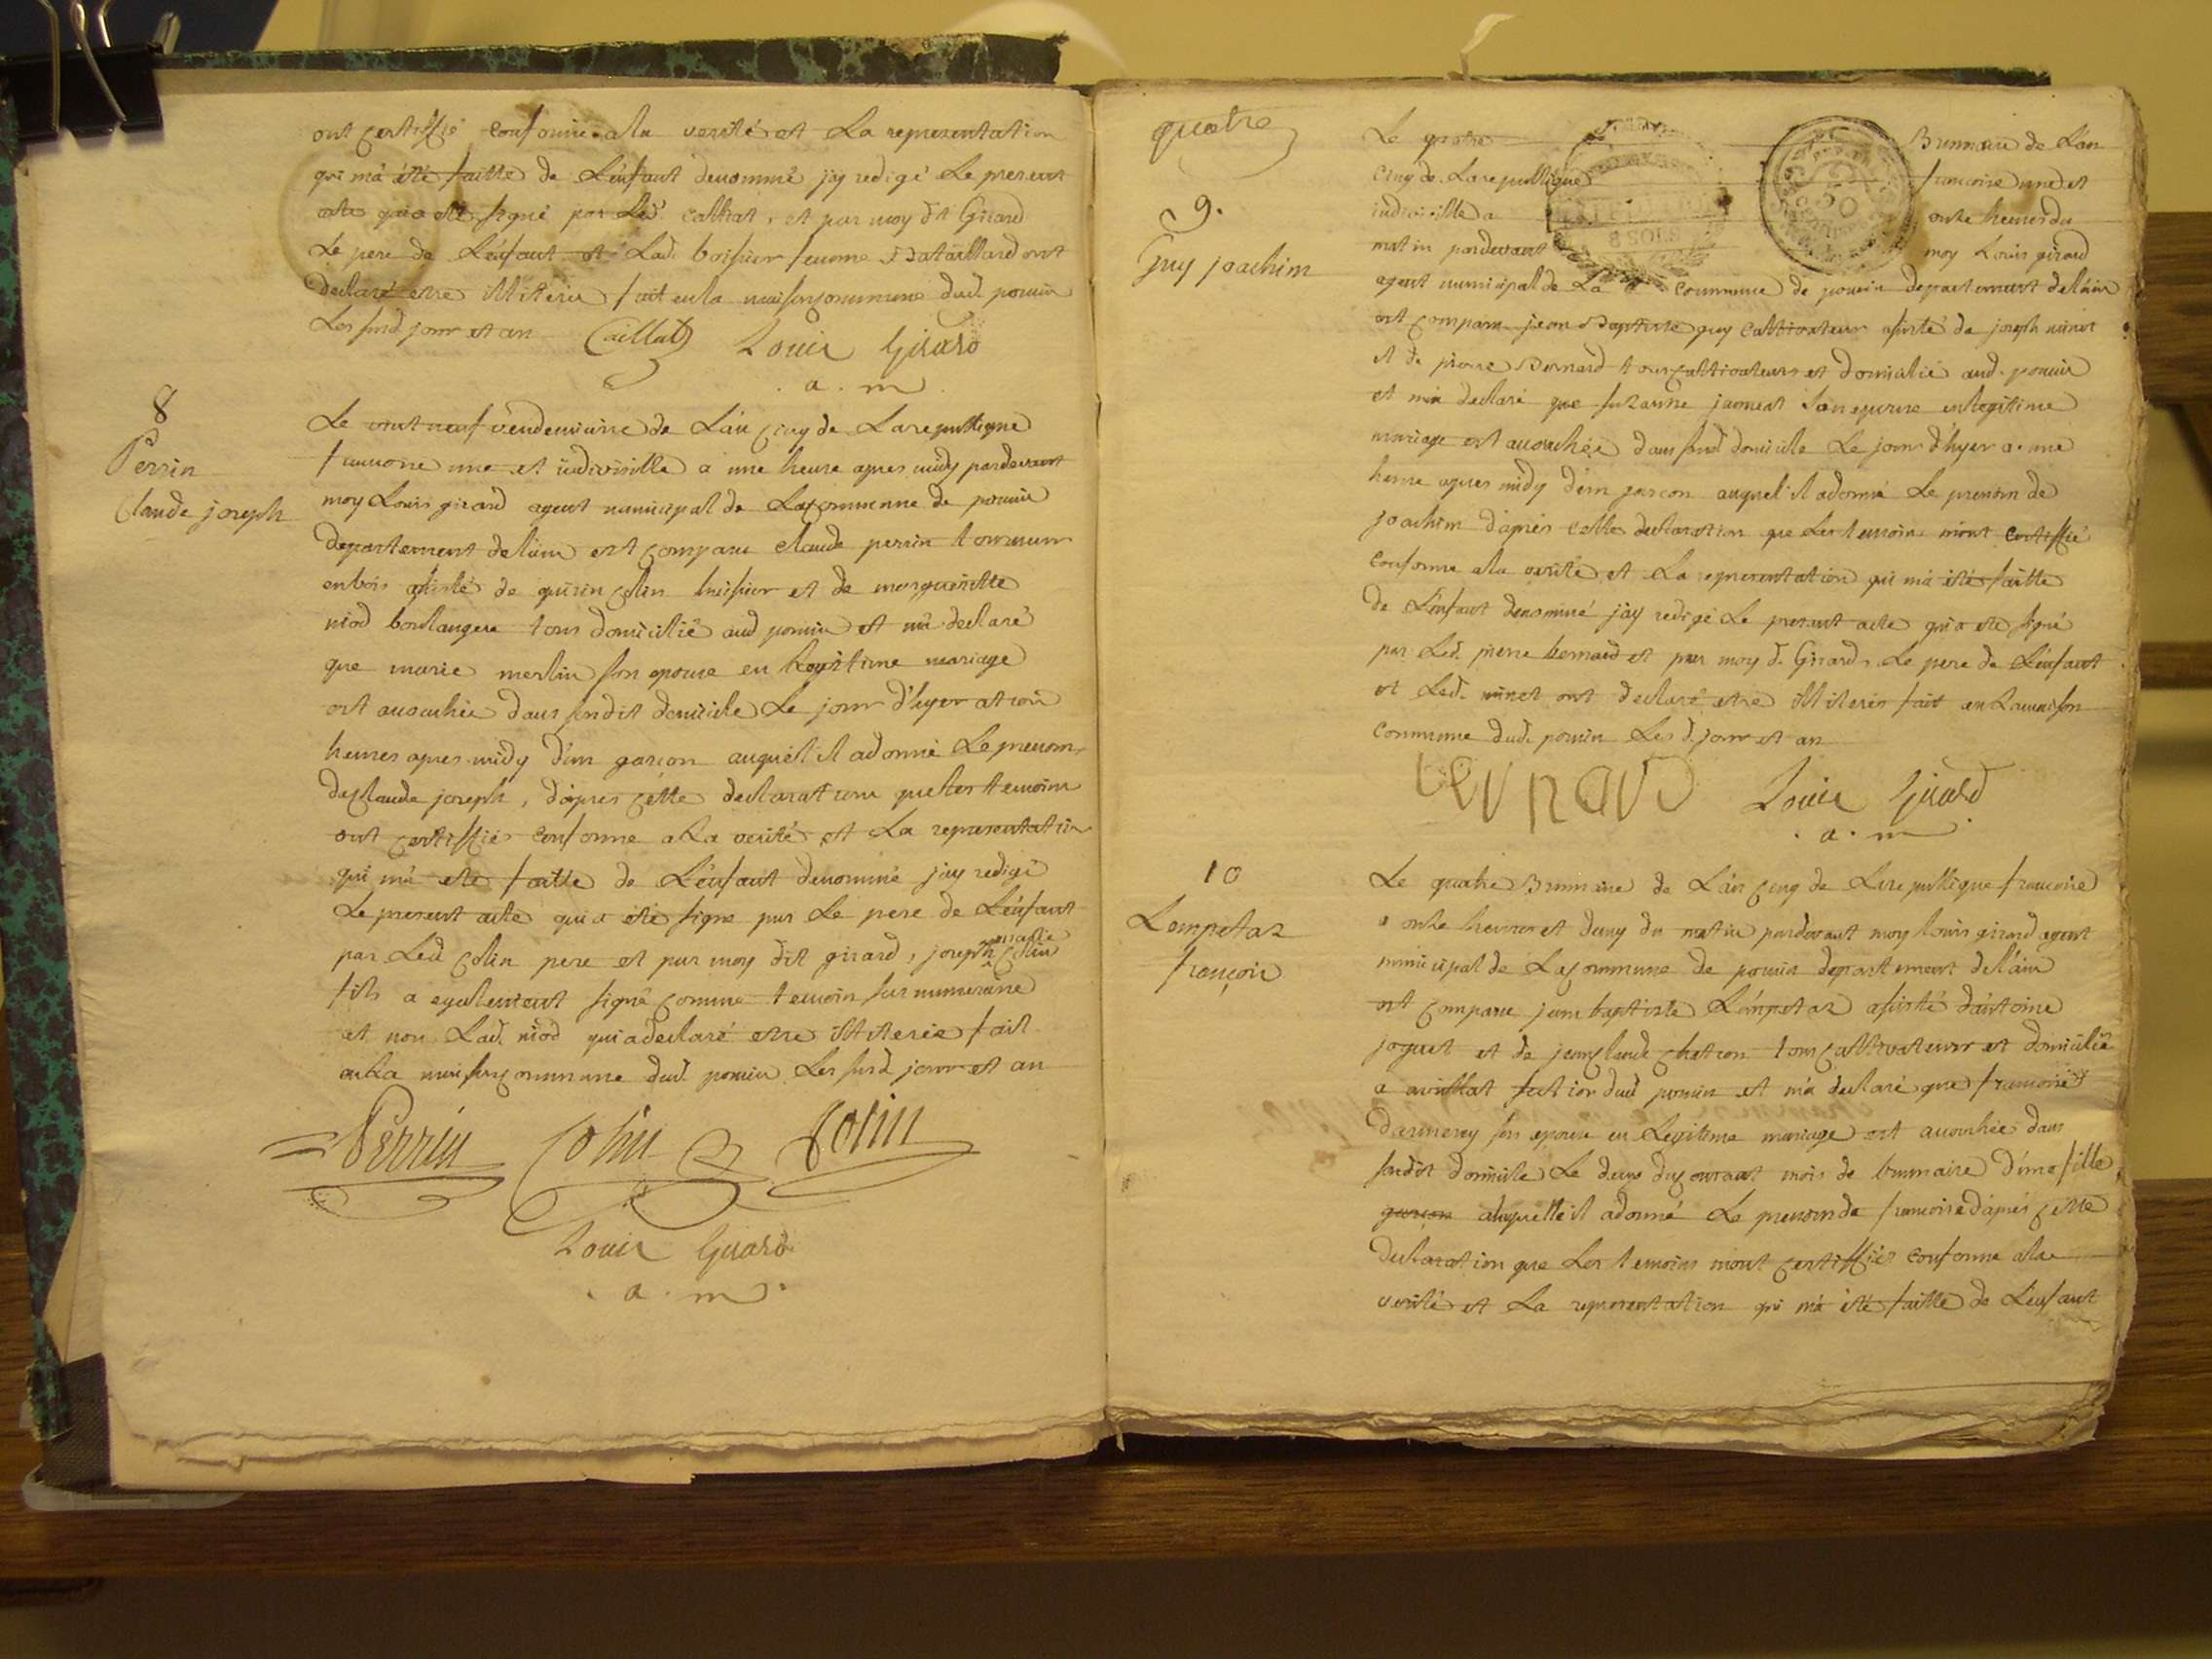 ont certiffié conforme a la verité et La representation
qui m'a été faitte de L'enfant denommé jay redigé Le present
acte qui a été signé par Led. calliat, et par moy dt Girard
Le pere de L'enfant et Lad. boissier femme Bataillard ont
declaré etre illiteres fait en la maison commune dud. poncin
Les susd. jour et an
Caillat Louis Girard
. a . m .
8
Perrin
Claude joseph
Le vint neuf vendemiaire de L'an cinq de La republique
francoise une et indivisille a une heure apres midy pardevant
moy Louis girard agent municipal de La commune de poncin
departement de l'ain est comparu claude perrin tourneur
en bois assisté de quirin colin huissier et de margueritte
niod boulangere tous domicilié aud poncin et m'a declaré
que marie merlin son epouse en legitime mariage
est accouchée dans sondit domicile Le jour d'hyer a trois
heures apres midy d'un garcon auquel il a donné Le prenom
de Claude joseph, d'apres cette declaration que les temoins
ont certiffiés conforme a La verité et La representation
qui m'a eté faitte de L'enfant denommé jay redigé
Le present acte qui a été signé par Le pere de L'enfant
par Led colin pere et par moy dit girard, joseph marie colin
fils a egalement signé comme temoin surnumeraire
et non Lad. niod qui a declaré etre illiterée fait
en La maison commune dud. poncin Les susd. jour et an
Perrin Colin Colin
Louis Girard
. a . m .
quatre
9.
Guy joachim
Le quatre Brumaire de L'an
cinq de La republique francoise une et
indivisille a onze heures du
matin pardevant moy Louis girard
agent municipal de La commune de poncin departement de l'ain
est comparu jean Baptiste guy cultivateur assisté de joseph minet
et de pierre Bernard tous cultivateurs et domicilié aud. poncin
et m'a declaré que suzanne son epouse en legitime
mariage est accouchée dans sond domicile Le jour d'hyer a une
heure apres midy d'un garcon auquel il a donné Le prenom de
joachim d'après cette declaration que Les temoins m'ont certiffié
conforme a la verité et La representation qui m'a été faitte
de L'enfant denommé jay redigé Le present acte qui a eté signé
par Led. pierre bernard et par moy d. Girard. Le pere de L'enfant
et Led. minet ont declaré etre illiterés fait en La maison
commune dud. poncin Les d. jour et an
bernard Louis Girard
. a . m .
10
Lempetaz
françoise
Le quatre Brumaire de L'an cinq de La republique francoise
a onze heures et demy du matin pardevant moy louis girard agent
municipal de La commune de poncin departement de l'ain
est comparu jean baptiste Lempetaz assisté d'antoine
joguet et de jean claude chatron tous cultivateurs et domicilié
a avrillat section dud poncin et m'a declaré que francoise
darmerey son epouse en Legitime mariage est accouchée dans
sondit domicile Le deux du courant mois de brumaire d'une fille
garcon a laquelle il a donné Le prenom de francoise d'apres cette
declaration que Les temoins m'ont certiffiés conforme a la
verité et La representation qui m'a été faitte de L'enfant